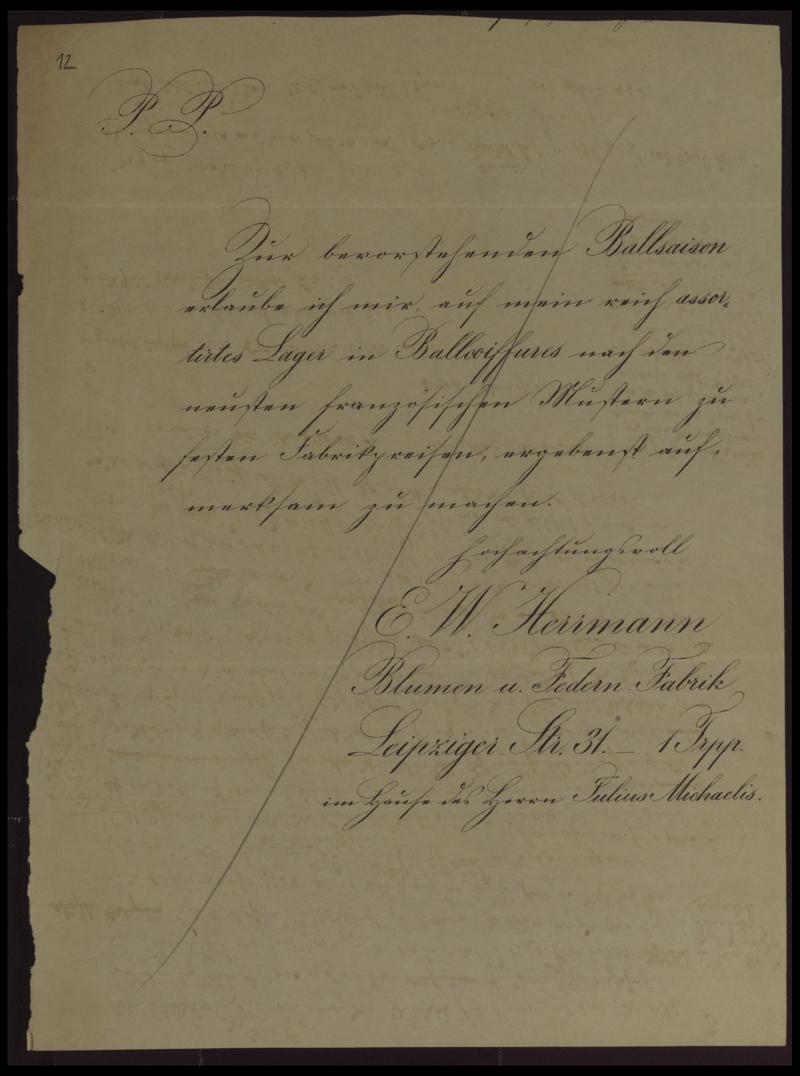 12
P. P.
Zur bevorstehenden Ballsaison
erlaube ich mir, auf mein reich assor-
tirtes Lager in Ballcoiffures nach den
neusten französischen Mustern zu
festen Fabrikpreisen, ergebenst auf-
merksam zu machen.
Hochachtungsvoll
E. W. Herrmann
Blumen u. Federn Fabrik
Leipziger Str. 31. – 1 Trpp.
im Hause des Herrn Julius Michaelis.